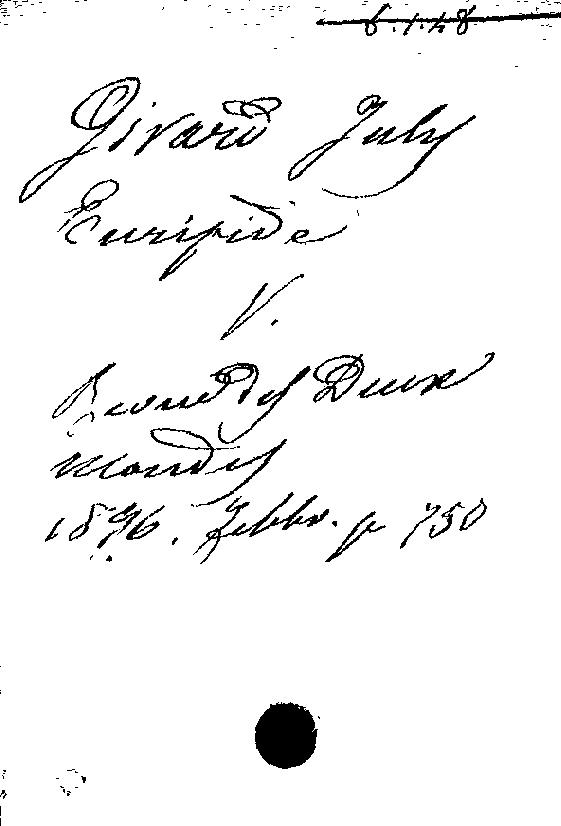 6.1.48
Girard July
Euripide
V.
Revue des Deux
Mondes
1896. Febbr. p 750